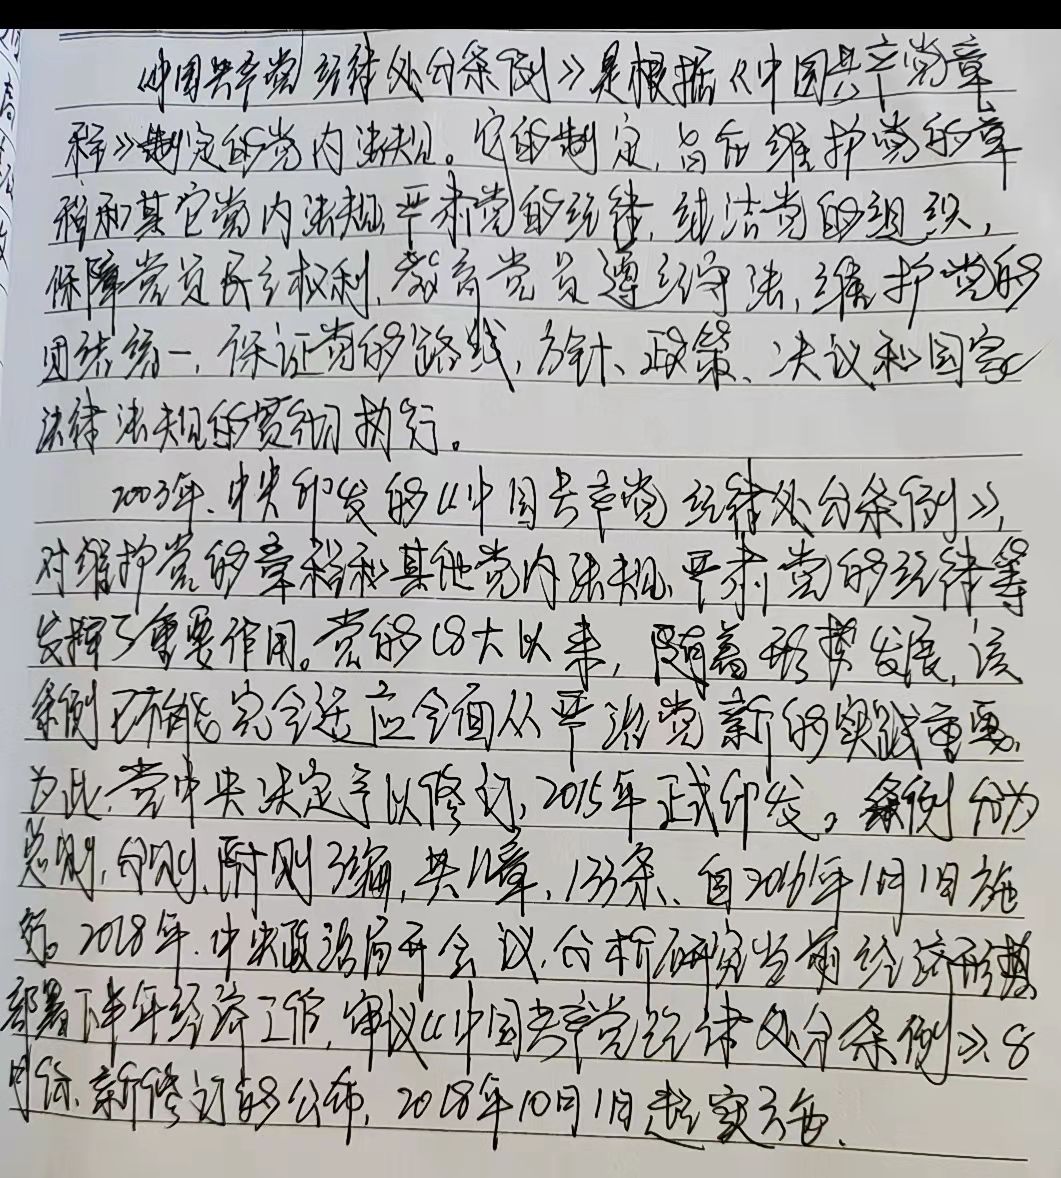 《中国共产党纪律处分条例》是根据《中国共产党章
程》制定的党内法规。它的制定,旨在维护党的章
程和其它党内法规,严肃党的纪律,纯洁党的组织,
保障党员民主权利,教育党员遵纪守法,维护党的
团结统一,保证党的路线,方针、政策、决议和国家
法律法规的贯彻执行。
2003年,中央印发的《中国共产党纪律处分条例》,
对维护党的章程和其他党内法规,严肃党的纪律等
发挥了重要作用。党的18大以来,随着形势发展,该
条例已不能完全适应全面从严治党新的实践重要,
为此,党中央决定予以修订,2015年正式印发。条例分为
总则,分则,附则3编,共11章,133条、自2016年1月1日施
行。2018年,中央政治局开会议,分析研究当前经济形势
部署下半年经济工作,审议《中国共产党纪律处分条例》。8
月份,新修订的公布,2018年10月1日起实施.